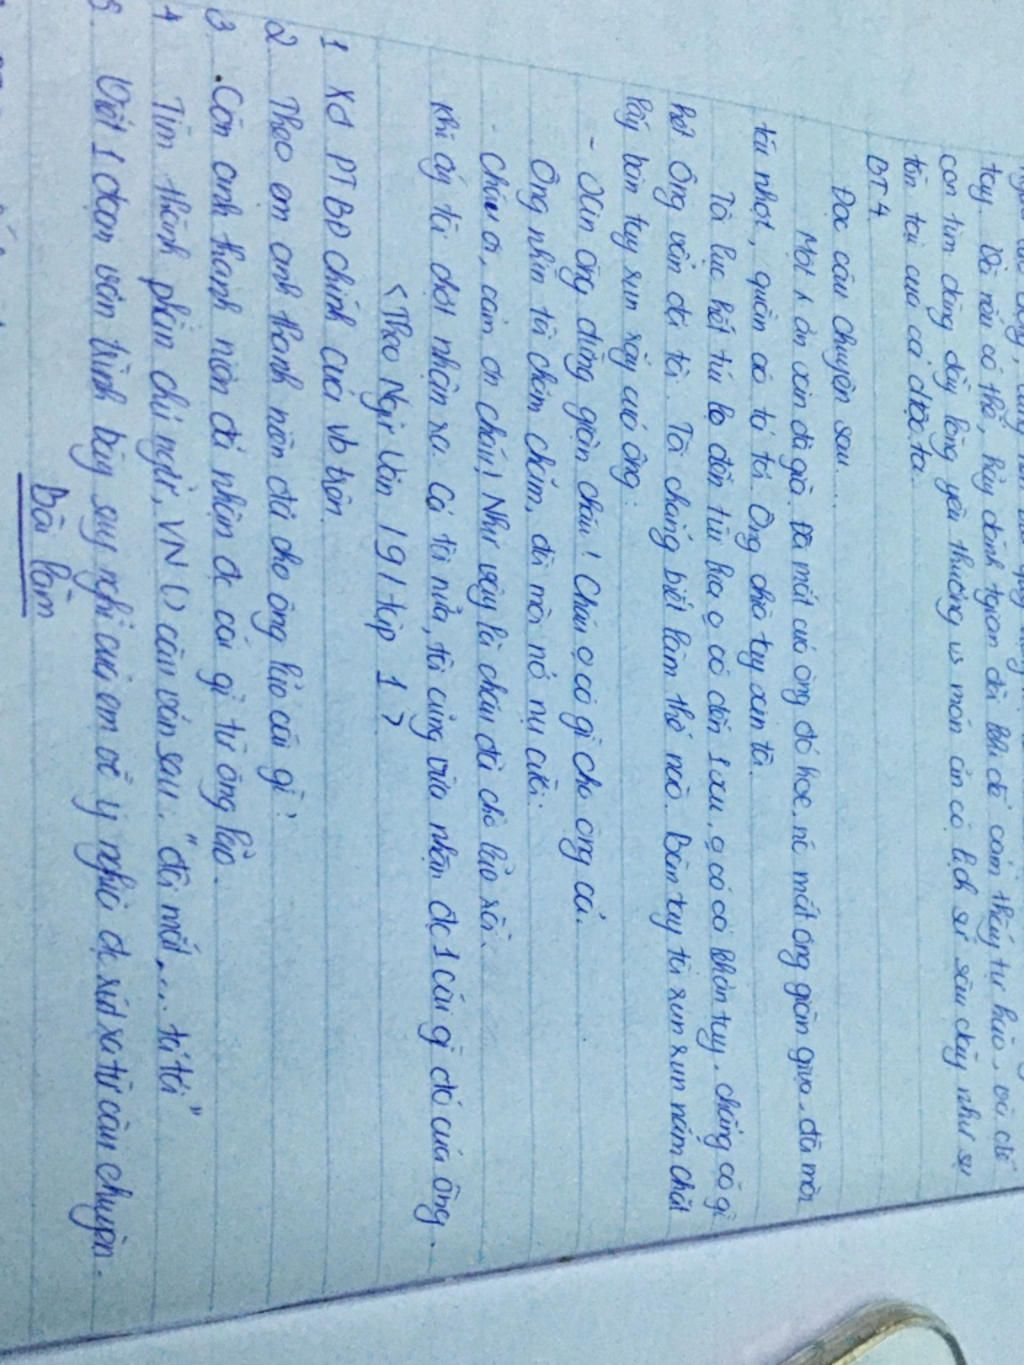 tay. Dù nếu có thể, hãy dành tgian để khi đó cảm thấy tự hào, và để
con tim dâng đầy lòng yêu thương vs món ăn có lịch sử sâu dày như sự
tồn tại của cả dtộc ta.
BT4
Đọc câu chuyện sau...
Một ng ăn xin đã già. Đôi mắt của ông đỏ hoe, nc mắt ông giàn giụa, đôi môi
tái nhợt, quần áo tả tơi. Ông chìa tay xin tôi.
Tôi lục hết túi nọ đến túi kia, o có đến 1 xu, o có cả khăn tay, chẳng có gì
hết. Ông vẫn đợi tôi. Tôi chẳng biết làm thế nào. Bàn tay tôi run run nắm chặt
lấy bàn tay run rẩy của ông:
- Xin ông đừng giận cháu! Cháu o có gì cho ông cả.
Ông nhìn tôi chăm chăm, đôi môi nở nụ cười:
- Cháu ơi, cảm ơn cháu! Như vậy là cháu đã cho lão rồi.
Khi ấy tôi chợt nhận ra: Cả tôi nữa, tôi cũng vừa nhận đc 1 cái gì đó của ông.
<Theo Ngữ Văn 19/tập 1>
1 Xđ PTBĐ chính của vb trên
2 Theo em anh thanh niên đã cho ông lão cái gì?
3. Còn anh thanh niên đã nhận đc cái gì từ ông lão.
4 Tìm thành phần chủ ngữ, VN () câu văn sau: "đôi mắt,... tả tơi"
5 Viết 1 đoạn văn trình bày suy nghĩ của em về ý nghĩa đc rút ra từ câu chuyện.
Bài làm